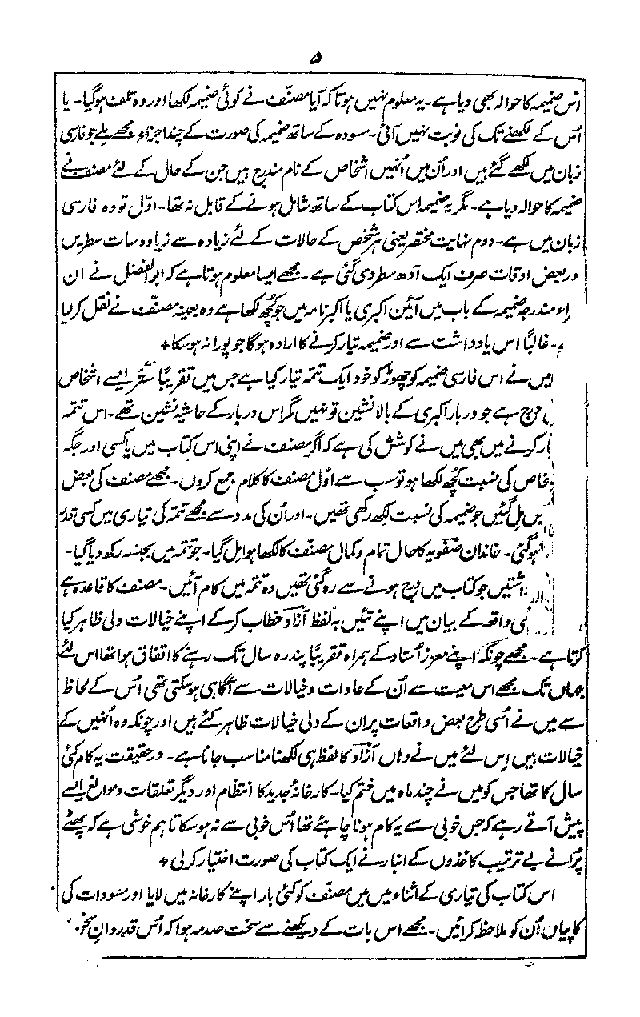 ۵
اس ضمیمہ کا حوالہ بھی دیا ہے۔ یہ معلوم نہیں ہوتا کہ آیا مصنف نے کوئی ضمیمہ لکھا اور وہ تلف ہوگیا۔ یا
اُس کے لکھنے تک کی نوبت نہیں آئی۔ مسودہ کے ساتھ ضمیمہ کی صورت کے چند اجزاء مجھے ملے جو فارسی
زبان میں لکھے گئے ہیں اور اُن میں اُنہیں اشخاص کے نام مندرج ہیں جن کے حال کے لئے مصنف نے
ضمیمہ کا حوالہ دیا ہے۔ مگر یہ ضمیمہ اس کتاب کے ساتھ شامل ہونے کے قابل نہ تھا۔ اوّل تو وہ فارسی
زبان میں ہے۔ دوم نہایت مختصر یعنی ہر شخص کے حالات کے لئے زیادہ سے زیادہ سات سطریں
ور بعض اوقات صرف ایک آدھ سطر دی گئی ہے۔ مجھے ایسا معلوم ہوتا ہے کہ ابوالفضل نے ان
اء مندرجہ ضمیمہ کے باب میں آئین اکبری یا اکبرنامہ میں جو کچھ لکھا ہے وہ بعینہ مصنف نے نقل کرلیا
۔ غالباً اس یادداشت سے اور ضمیمہ تیار کرنے کا ارادہ ہوگا جو پورا نہ ہوسکا٭
میں نے اس فارسی ضمیمہ کو چھوڑ کر خود ایک تتمہ تیار کیا ہے جس میں تقریباً ستّر ایسے اشخاص
درج ہے جو دربار اکبری کے بالانشین تو نہیں مگر اس دربار کے حاشیہ نشین تھے۔ اس تتمہ
یار کرنے میں بھی میں نے کوشش کی ہے کہ اگر مصنف نے اپنی اس کتاب میں یا کسی اور جگہ
خاص کی نسبت کچھ لکھا ہو تو سب سے اوّل مصنف کا کلام جمع کروں۔ مجھے مصنف کی بعض
یں مل گئیں جو ضمیمہ کی نسبت لکھ رکھی تھیں۔ اور اُن کی مدد سے مجھے تتمہ کی تیاری میں کسی قدر
ہوگئی۔ خاندان صفویہ کا حال تمام و کمال مصنف کا لکھا ہوا مل گیا۔ جو تتمہ میں بجنسہ رکھ دیا گیا۔
داشتیں جو کتاب میں درج ہونے سے رہ گئی تھیں وہ تتمہ میں کام آئیں۔ مصنف کا قاعدہ ہے
ی واقعہ کے بیان میں اپنے تئیں بہ لفظ آزاد خطاب کرکے اپنے خیالات دلی ظاہر کیا
کرتا ہے۔ مجھے چونکہ اپنے معزز اُستاد کے ہمراہ تقریباً پندرہ سال تک رہنے کا اتفاق ہوا تھا اس لئے
جہاں تک مجھے اس معیت سے اُن کے عادات و خیالات سے آگاہی ہوسکتی تھی اُس کے لحاظ
سے میں نے اُسی طرح بعض واقعات پر ان کے دلی خیالات ظاہر کئے ہیں اور چونکہ وہ اُنہیں کے
خیالات ہیں اس لئے میں نے وہاں آزاد کا لفظ ہی لکھنا مناسب جانا ہے۔ درحقیقت یہ کام کئی
سال کا تھا جس کو میں نے چند ماہ میں ختم کیا۔ کارخانہ جدید کا انتظام اور دیگر تعلقات و موانع ایسے
پیش آتے رہے کہ جس خوبی سے یہ کام ہونا چاہئے تھا اُس خوبی سے نہ ہوسکا تاہم خوشی ہے کہ پھٹے
پُرانے بے ترتیب کاغذوں کے انبار نے ایک کتاب کی صورت اختیار کرلی٭
اس کتاب کی تیاری کے اثناء میں میں مصنف کو کئی بار اپنے کارخانہ میں لایا اور مسودات کی
کاپیاں اُن کو ملاحظہ کرائیں۔ مجھے اس بات کے دیکھنے سے سخت صدمہ ہوا کہ اُس قدردانِ سخن